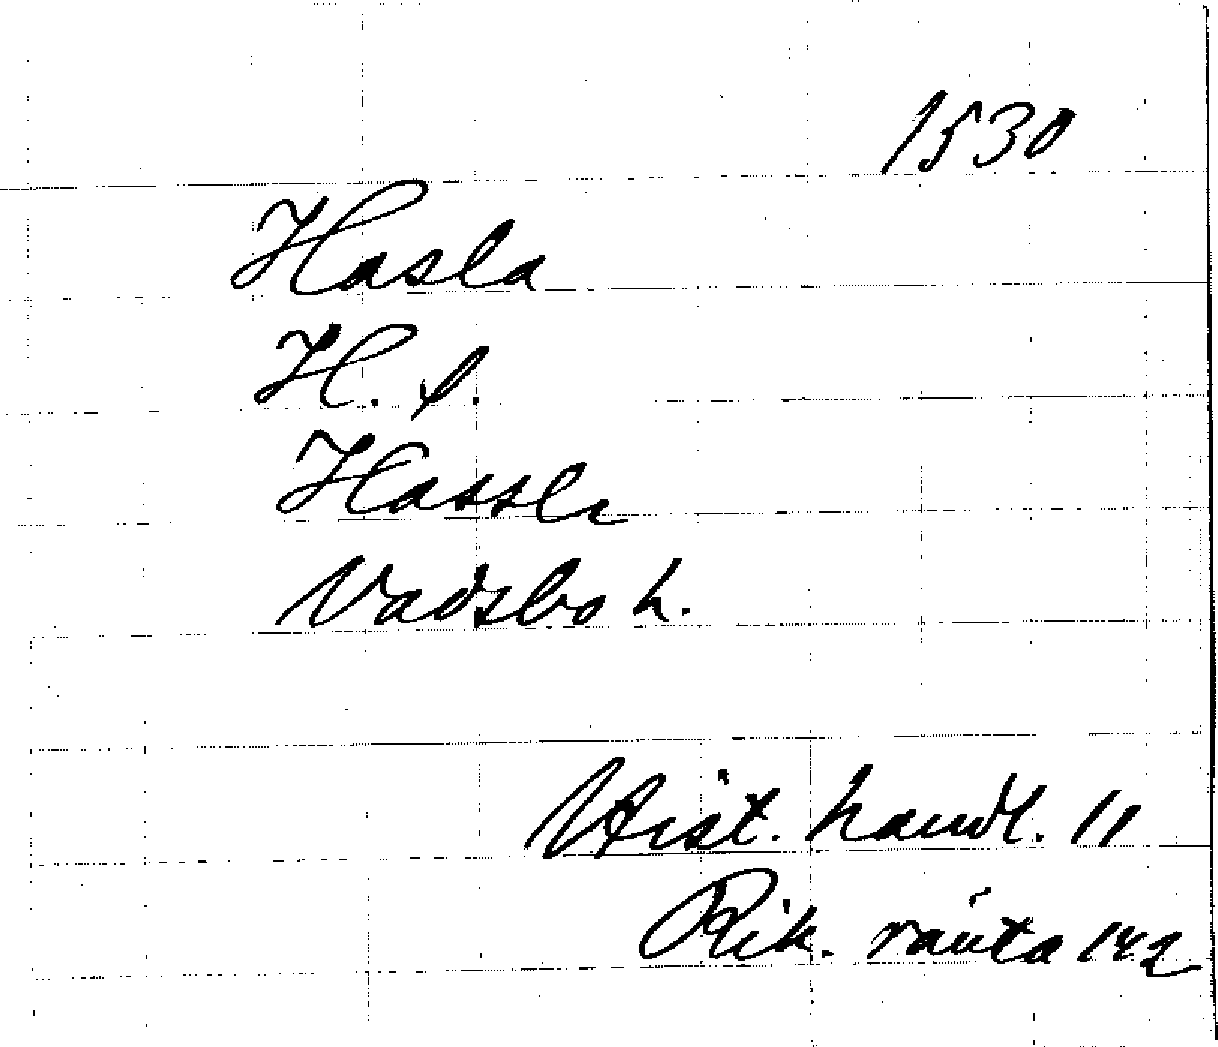 1530
Hasla
H. s.
Hassle
Vadsbo h.
Hist. handl. 11
Rik. ränta 142